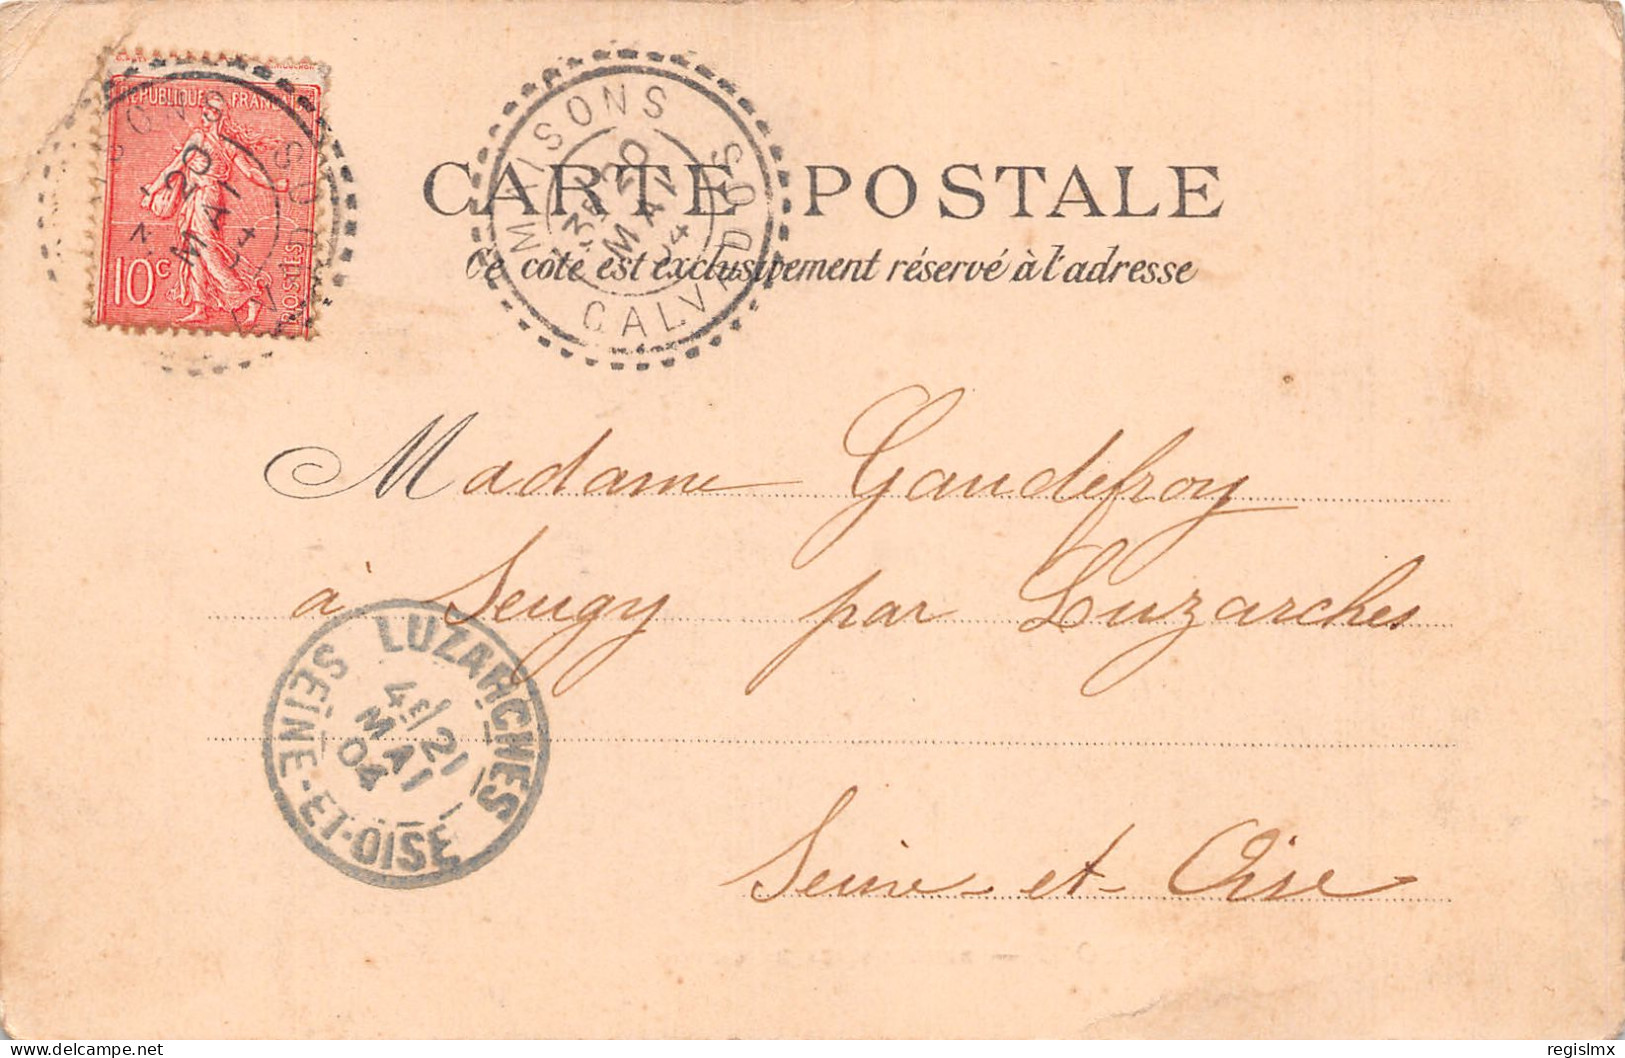 RÉPUBLIQUE FRANÇAISE
10c
POSTES
20
MAI
MAISONS
SOUS
CALVADOS
20
MAI
04
CARTE POSTALE
Ce côté est exclusivement réservé à l'adresse
Madame Gaudefroy
à Seugy par Luzarches
Seine-et-Oise
LUZARCHES
4E/21
MAI
04
SEINE-ET-OISE
delcampe.net
regislmx